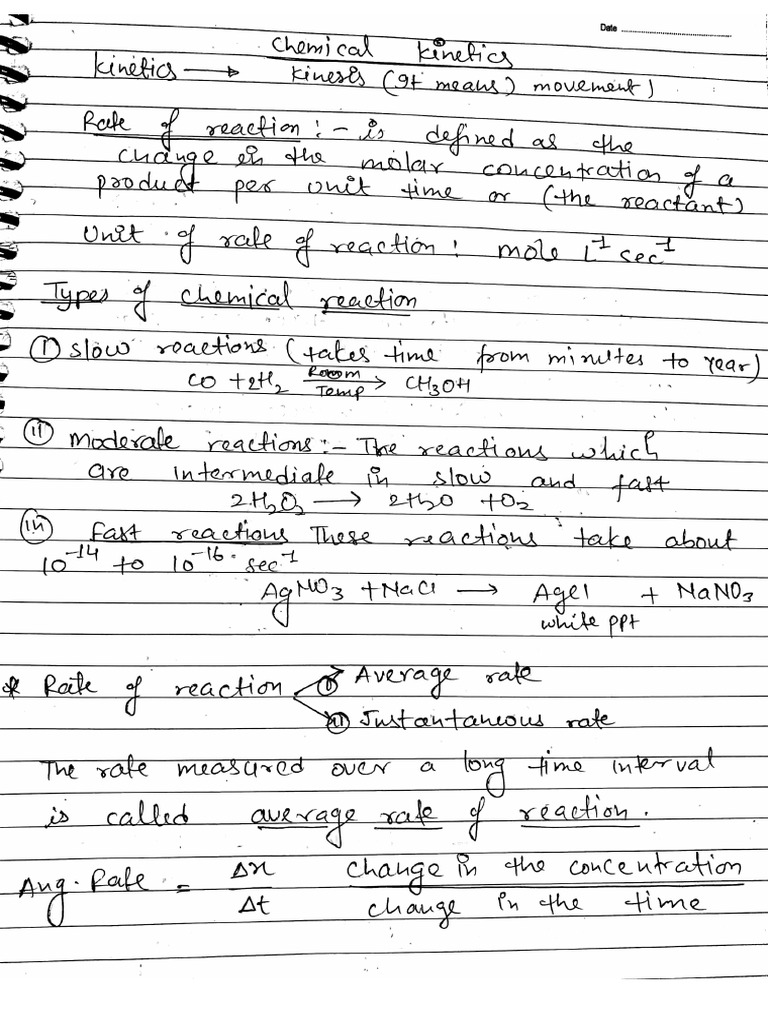 Date
Chemical Kinetics
Kinetics → Kinesis (It means) movement)
Rate of reaction :- is defined as the
change in the molar concentration of a
product per unit time or (the reactant)
Unit of rate of reaction : mole L⁻¹ sec⁻¹
Types of chemical reaction
(I) Slow reactions (takes time from minutes to year)
CO + 2H₂ Room Temp → CH₃OH
(II) Moderate reactions:- The reactions which
are intermediate in slow and fast
2H₂O₂ → 2H₂O + O₂
(III) Fast reactions These reactions take about
10⁻¹⁴ to 10⁻¹⁶ sec⁻¹
AgNO₃ + NaCl → AgCl + NaNO₃
white ppt
* Rate of reaction (I) Average rate
(II) Instantaneous rate
The rate measured over a long time interval
is called average rate of reaction.
Avg. Rate = Δx/Δt change in the concentration
change in the time